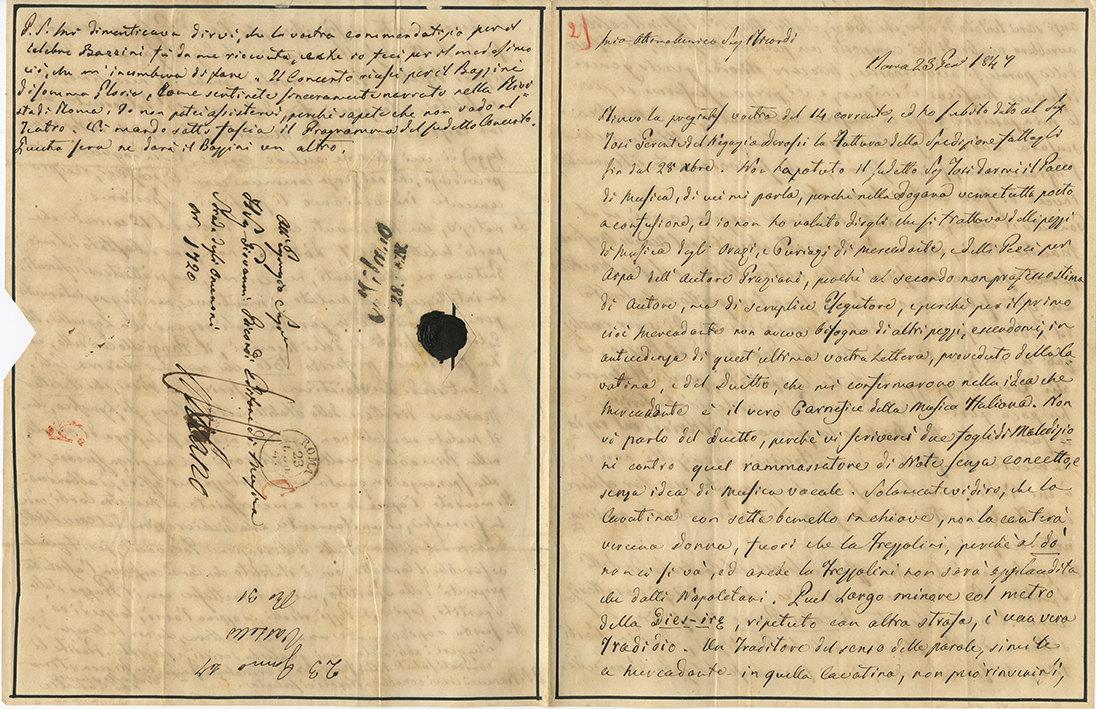 P. S. Mi dimenticava dirvi, che la vostra commendatizia per il
celebre Bazzini fu da me ricevuta, e che io feci per il medesimo
ciò, che m'incumbeva di fare. Il Concerto riuscì per il Bazzini
di somma Gloria, come sentirete sinceramente narrato nella Rivi-
sta di Roma. Io non potei assistervi, perchè sapete che non vado al
Teatro. Vi mando sotto fascia il Programma del sudetto Concerto.
Questa sera ne darà il Bazzini un altro.
All'
Sig. Giovanni Ricordi Editore di Musica
Strada degli Omenoni
N. 1720
Milano
ROMA
23
23 Genno 47
Vasselli
2)
Mio Sig. Ricordi
Roma 23 Genn. 1847
Ricevo la pregiata vostra del 14 corrente, ed ho subito dato al Sig.
Tosi Gerente del Negozio la Fattura della Spedizione fattagli
fin dal 28 Xbre. Non ha potuto il sudetto Sig. Tosi darmi il Pacco
di Musica, di cui mi parla, perchè nella Dogana venne tutto posto
a confusione, ed io non ho voluto dirgli che si trattava delli pezzi
di Musica degli Orazj, e Curiazj di Mercadante, e delli Pezzi per
Arpa dell'Autore Graziani, perchè al secondo non professo stima
di Autore, ma di semplice Esecutore, e perchè per il primo
cioè Mercadante non aveva bisogno di altri pezzi, essendomi, in
antecedenza di quest'ultima vostra Lettera, proveduto della Ca-
vatina, e del Duetto, che mi confermarono nella idea che
Mercadante è il vero Carnefice della Musica Italiana. Non
vi parlo del Duetto, perchè vi scriverei due fogli di Maledizio-
ni contro quel rammassatore di Note senza concetto, e
senza idea di Musica vocale. Solamente vi dirò, che la
Cavatina con sette bemolle in chiave, non la canterà
veruna donna, fuori che la Frezzolini, perchè al dò
non ci si và, ed anche la Frezzolini non sarà applaudita
che dalli Napoletani. Quel Largo minore col metro
della Dies-ire, ripetuto con altra strofa, è una vera
Tradidio. Un Traditore del senso delle parole, simile
a Mercadante in quella Cavatina, non può rinvenirsi,